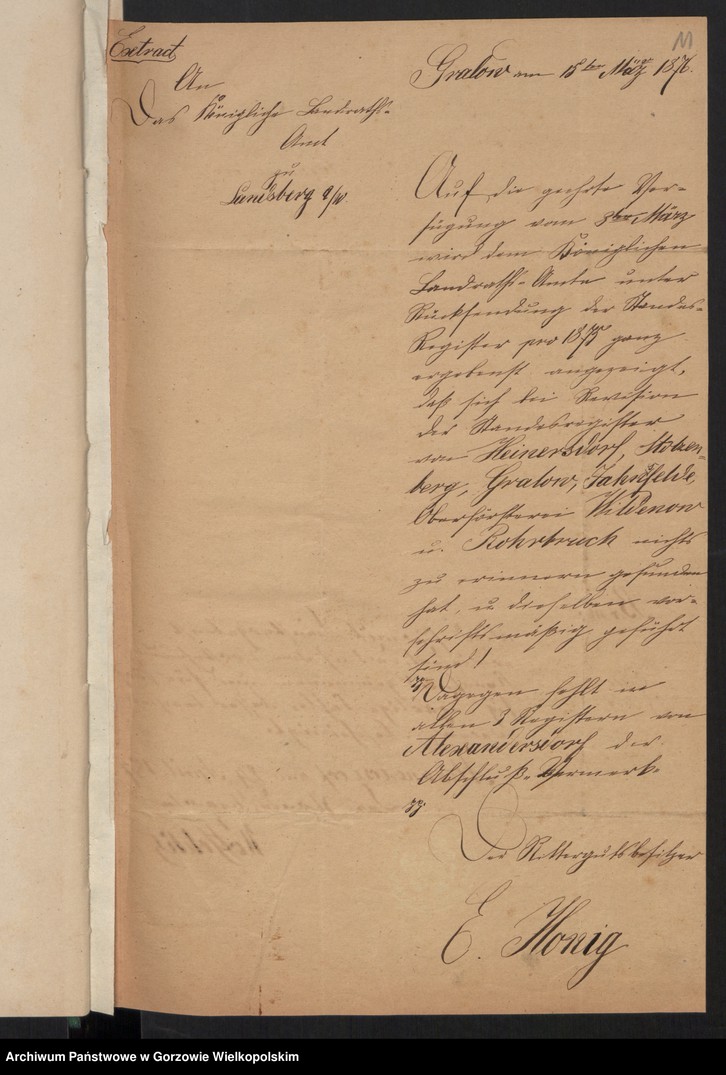 Extract
Gralow am 15ten März 1876.
An
Das Königliche Landraths-
Amt
zu
Landsberg a/W
Auf die geehrte Ver-
fügung vom 3ten März
wird dem Königlichen
Landraths-Amte unter
Rücksendung der Standes-
Register pro 1875 ganz
ergebenst angezeigt,
daß sich bei Revision
der Standesregister
von Heinersdorf, Stolzen-
berg, Gralow, Jahnsfelde,
Oberförsterei Wildenow
u. Rohrbruch nichts
zu erinnern gefunden
hat, u. dieselben vor-
schriftsmäßig geführt
sind!
Dagegen fehlt in
allen 3 Registern von
Alexandersdorf der
Abschluß-Vermerk.
Der Rittergutsbesitzer
E. Honig
Archiwum Państwowe w Gorzowie Wielkopolskim